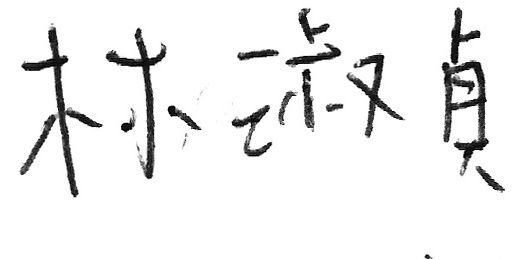 林淑貞